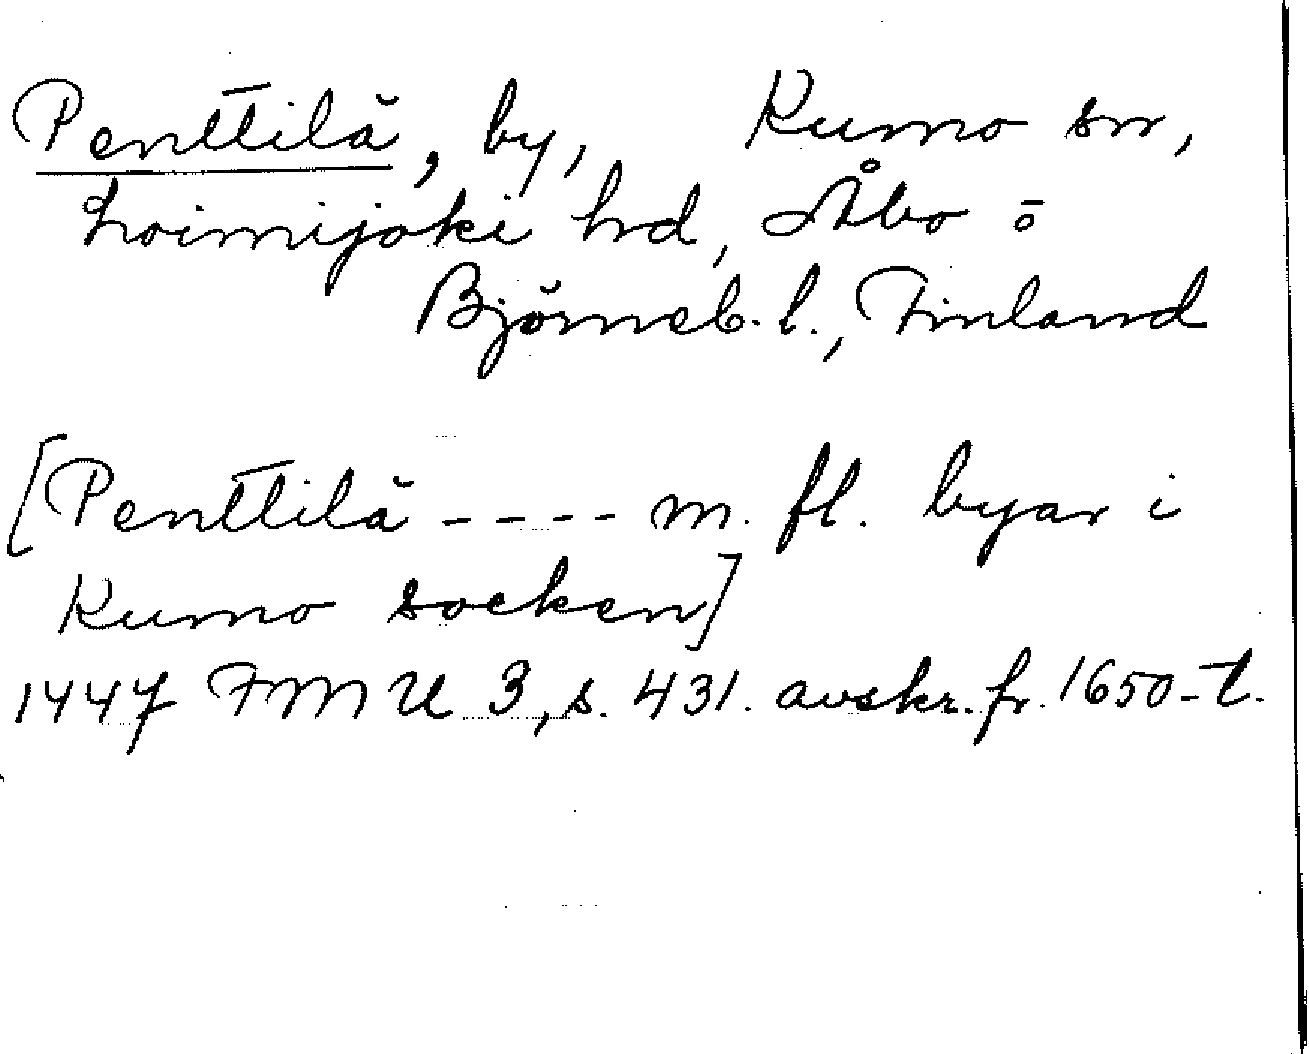 Penttilä, by, Kumo sn,
Loimijoki hd, Åbo o
Björneb. l., Finland
[Penttilä ---- m. fl. byar i
Kumo socken]
1447 FMU 3, s. 431. avskr. fr. 1650-t.